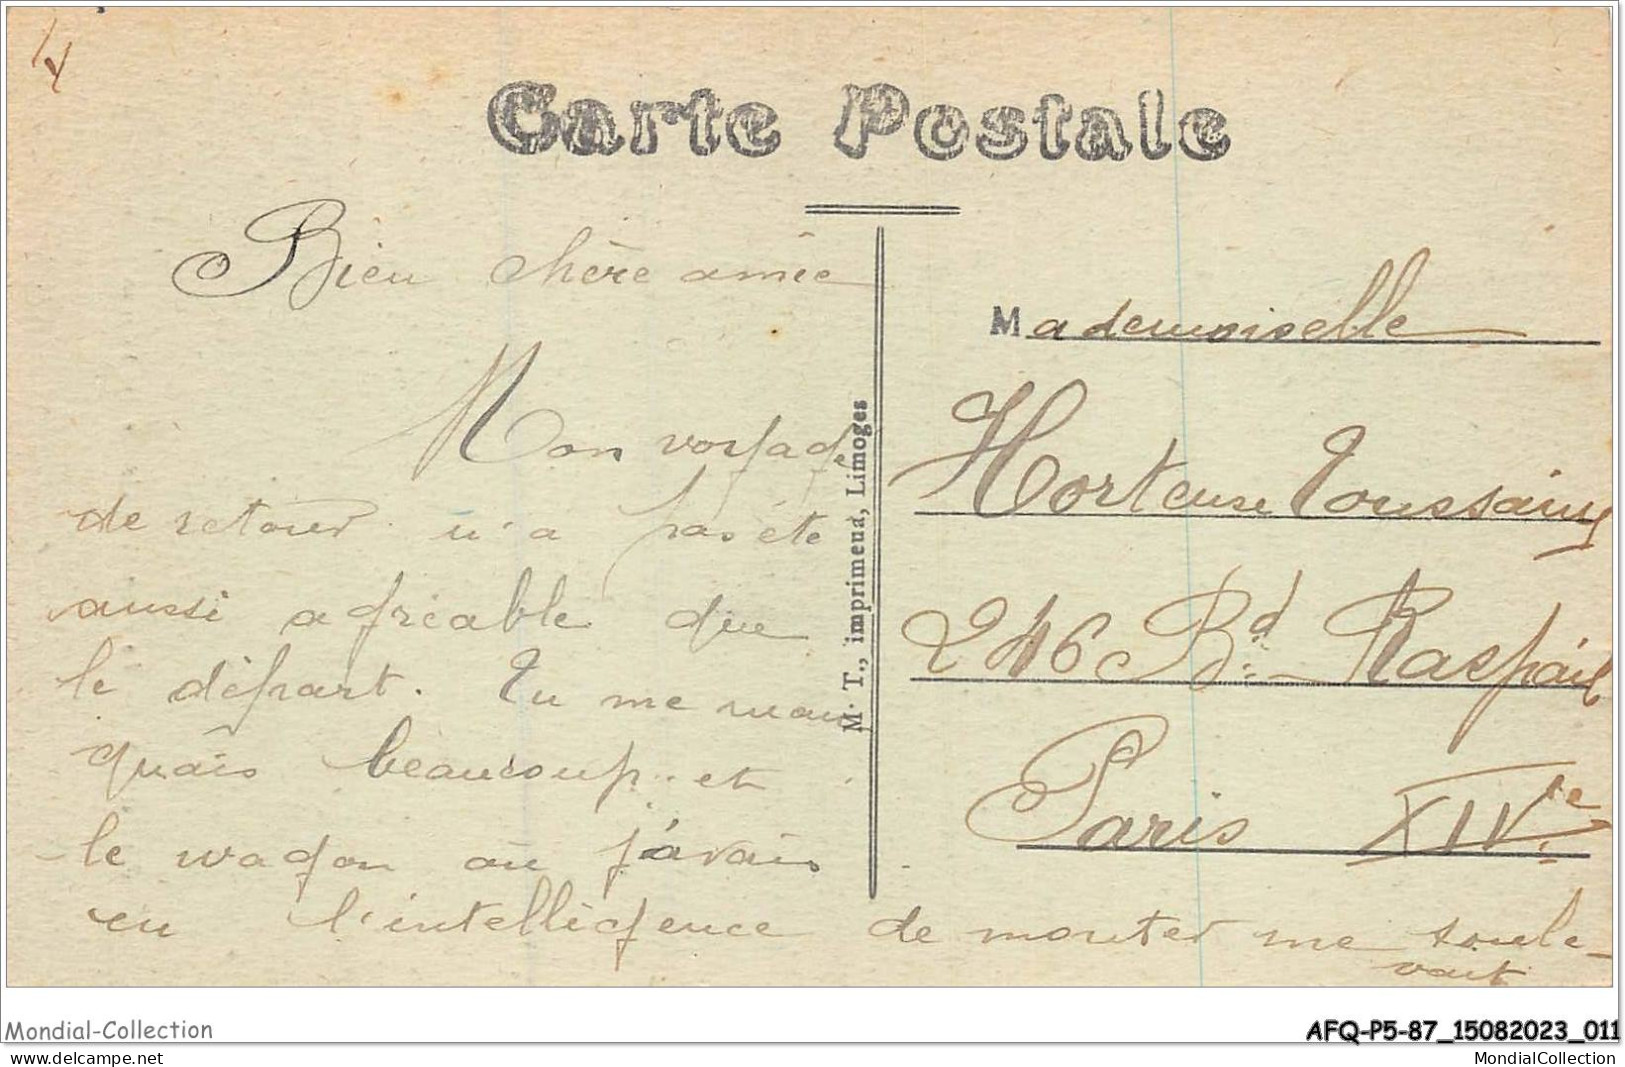 Carte Postale
Bien chère amie
Mon voyage
de retour n'a pas été
aussi agréable que
le départ. Tu me man
quais beaucoup. et
le wagon où j'avais
eu l'intelligence de monter me soule-
vait
M. T., imprimeud, Limoges
Mademoiselle
Hortense Toussaint
246 Bd Raspail
Paris XIVe
Mondial-Collection
www.delcampe.net
AFQ-P5-87_15082023_011
MondialCollection